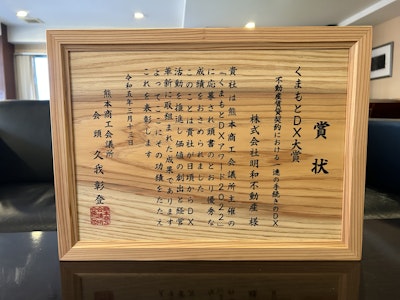 賞状
くまもとDX大賞
不動産賃貸契約における一連の手続きのDX
株式会社明和不動産 様
貴社は熊本商工会議所主催の
「くまもとDXアワード2022」
に応募され頭書のとおり優秀な
成績をおさめられました
このことは貴社が日頃からDX
活動を推進し価値の創出と経営
革新に取組まれた成果であります
よってここにその功績をたたえ
これを表彰します
令和五年三月十三日
熊本商工会議所
会頭 久我彰登